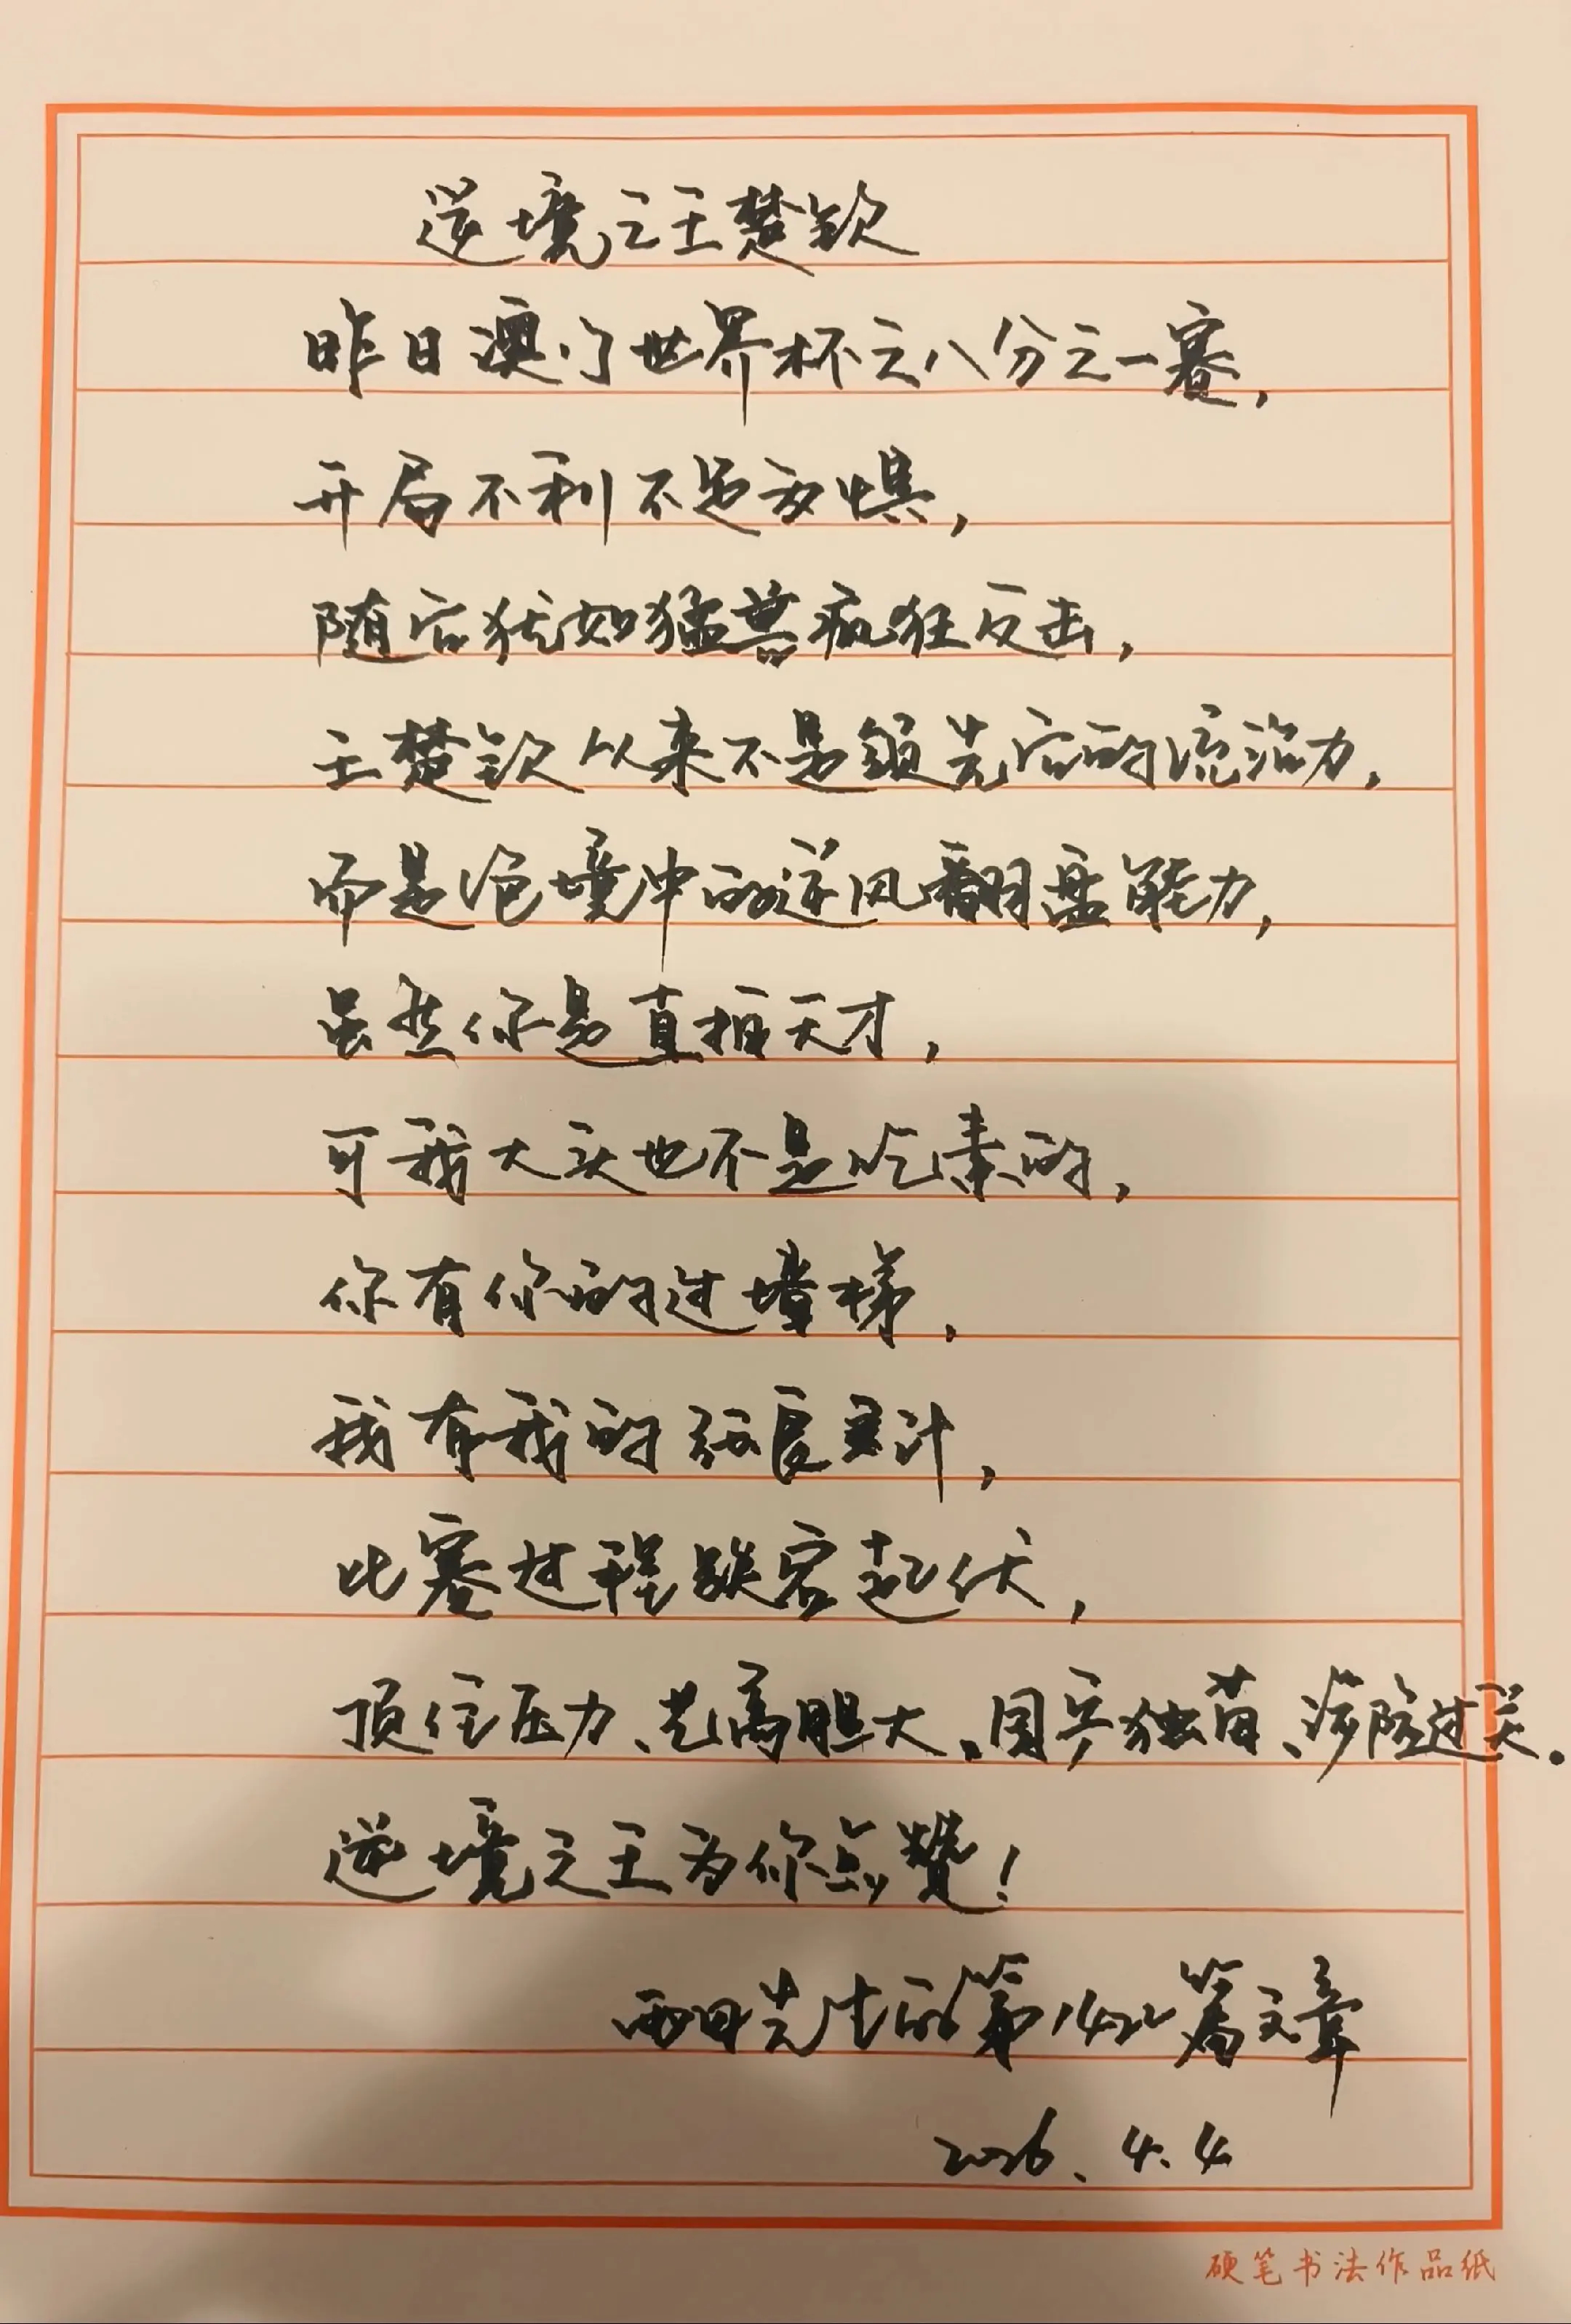 逆境之王楚钦
昨日澳门世界杯之八分之一赛,
开局不利不足为惧,
随后犹如猛兽疯狂反击,
王楚钦从来不是领先后的统治力,
而是绝境中的逆风翻盘能力,
虽然你是直拍天才,
可我大头也不是吃素的,
你有你的过墙梯,
我有我的张良计,
比赛过程跌宕起伏,
顶住压力、艺高胆大、国乒独苗、涉险过关.
逆境之王为你点赞!
雨田先生的第1422篇文章
2026.4.4
硬笔书法作品纸